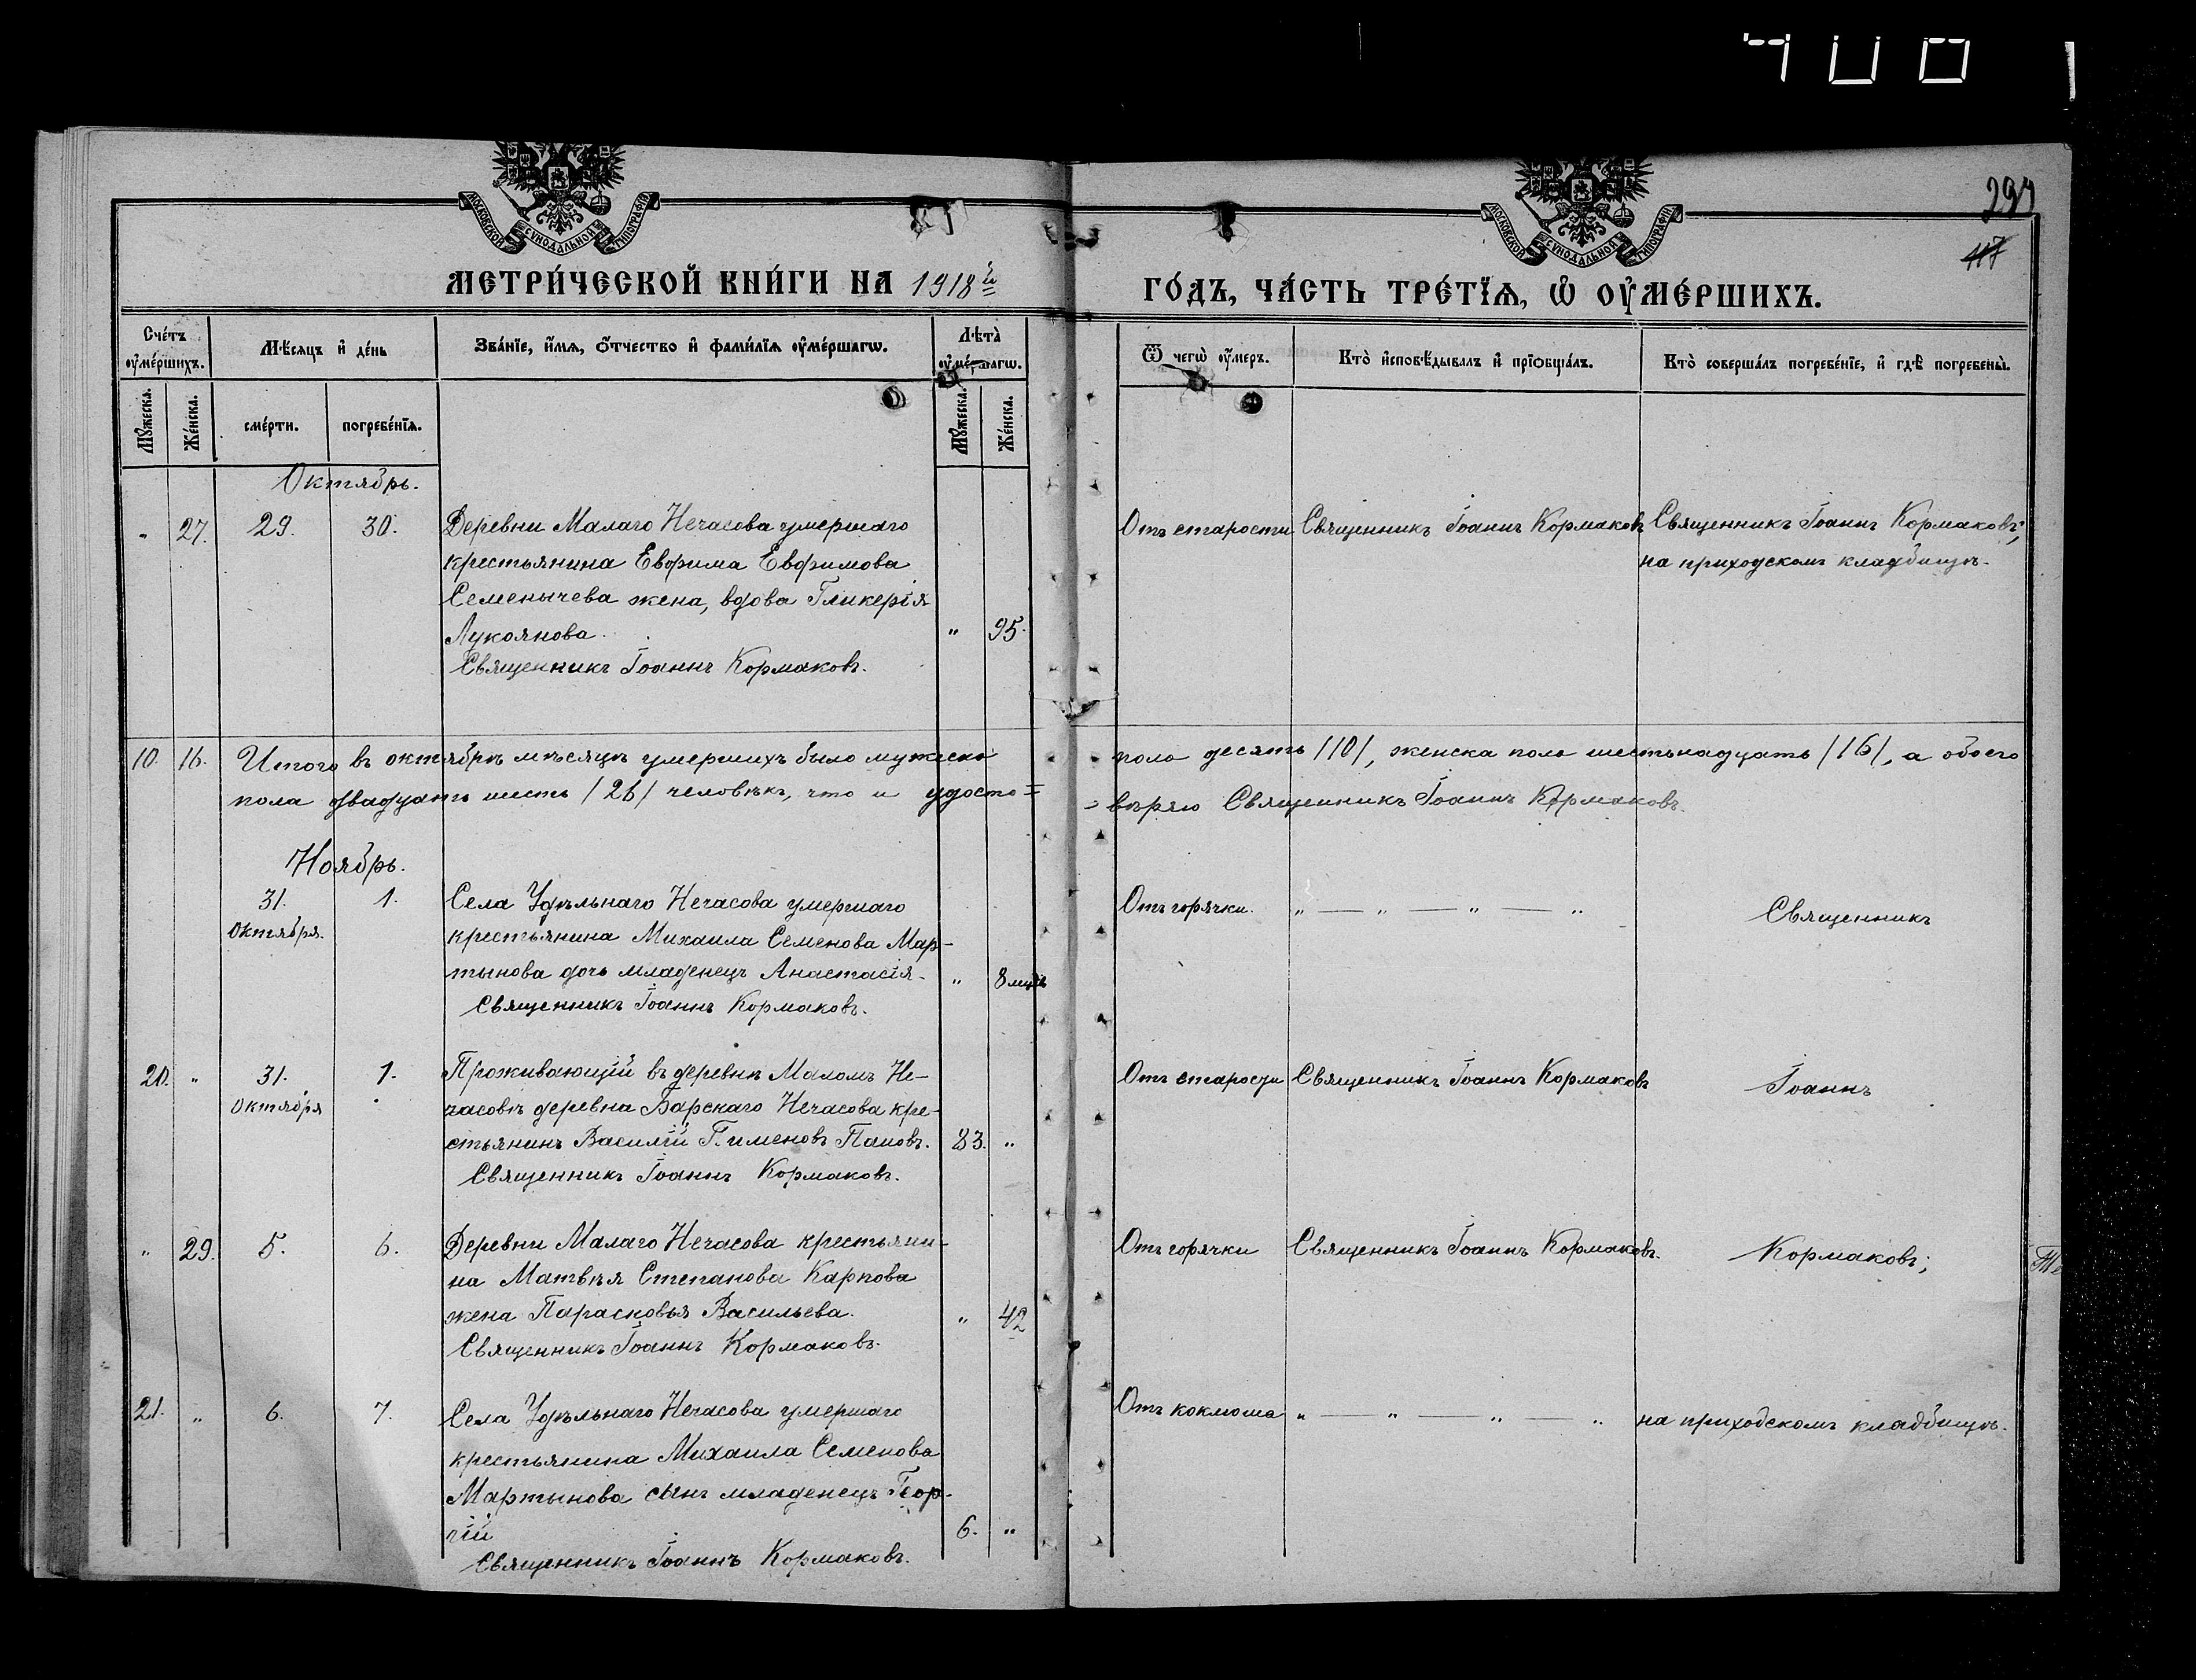 400
МОСКОВСКОЙ СУНОДАЛЬНОЙ ТИПОГРАФІИ
МОСКОВСКОЙ СУНОДАЛЬНОЙ ТИПОГРАФІИ
297
117
МЕТРИ́ЧЕСКОЙ КНИ́ГИ НА 1918й
ГО́ДЪ, ЧА́СТЬ ТРЕ́ТЇѦ, Ѡ҆ ОУ҆МЕ́РШИХЪ.
Сче́тъ оу҆ме́ршихъ.
Мѣ́сяцъ и҆ де́нь
Зва́нїе, и҆́мѧ, ѻ҆́тчество и҆ фами́лїѧ оу҆ме́ршагѡ.
Лѣта̀ оу҆ме́ршагѡ.
Ѿ чегѡ̀ оу҆́меръ.
Кто̀ и҆сповѣ́дывалъ и҆ прїѻбща́лъ.
Кто̀ соверша́лъ погребе́нїе, и҆ гдѣ̀ погребены̀.
Му́жеска.
Же́нска.
сме́рти.
погребе́нїѧ.
Му́жеска.
Же́нска.
Октябрь.
" 27. 29. 30. Деревни Малаго Нечасова умершаго
крестьянина Евфима Евфимова
Семенычева жена, вдова Гликерія
Лукоянова. " 95.
Священникъ Іоаннъ Кормаковъ.
Отъ старости Священникъ Іоаннъ Кормаковъ Священникъ Іоаннъ Кормаковъ;
на приходскомъ кладбищѣ.
10. 16. Итого въ октябрѣ мѣсяцѣ умершихъ было мужеска
пола десять /10/, женска пола шестьнадцать /16/, а обоего
пола двадцать шесть /26/ человѣкъ, что и удосто=
=вѣряю Священникъ Іоаннъ Кормаковъ.
Ноябрь.
31. 1. Села Удѣльнаго Нечасова умершаго
Октября. крестьянина Михаила Семенова Мар-
тынова дочь младенецъ Анастасія. " 8 мцвъ
Священникъ Іоаннъ Кормаковъ.
Отъ горячки. " — " — " — " Священникъ
20. " 31. 1. Проживающій въ деревнѣ Маломъ Не-
Октября часовѣ деревни Барскаго Нечасова кре-
стьянинъ Василій Пименовъ Паповъ. 83. "
Священникъ Іоаннъ Кормаковъ.
Отъ старости Священникъ Іоаннъ Кормаковъ Іоаннъ
" 29. 5. 6. Деревни Малаго Нечасова крестьяни-
на Матвѣя Степанова Карпова
жена Парасковья Васильева. " 42
Священникъ Іоаннъ Кормаковъ.
Отъ горячки Священникъ Іоаннъ Кормаковъ. Кормаковъ;
21. " 6. 7. Села Удѣльнаго Нечасова умершаго
крестьянина Михаила Семенова
Мартынова сынъ младенецъ Геор-
гій 6. "
Священникъ Іоаннъ Кормаковъ.
Отъ коклюша " — " — " — " на приходскомъ кладбищѣ.